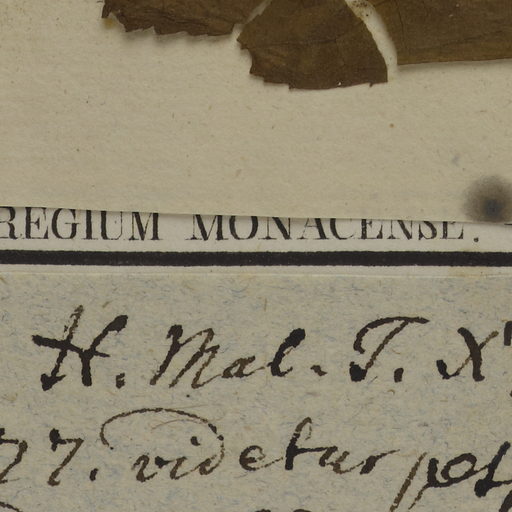 REGIUM MONACENSE.
H. Mal. T. X
77. videtur